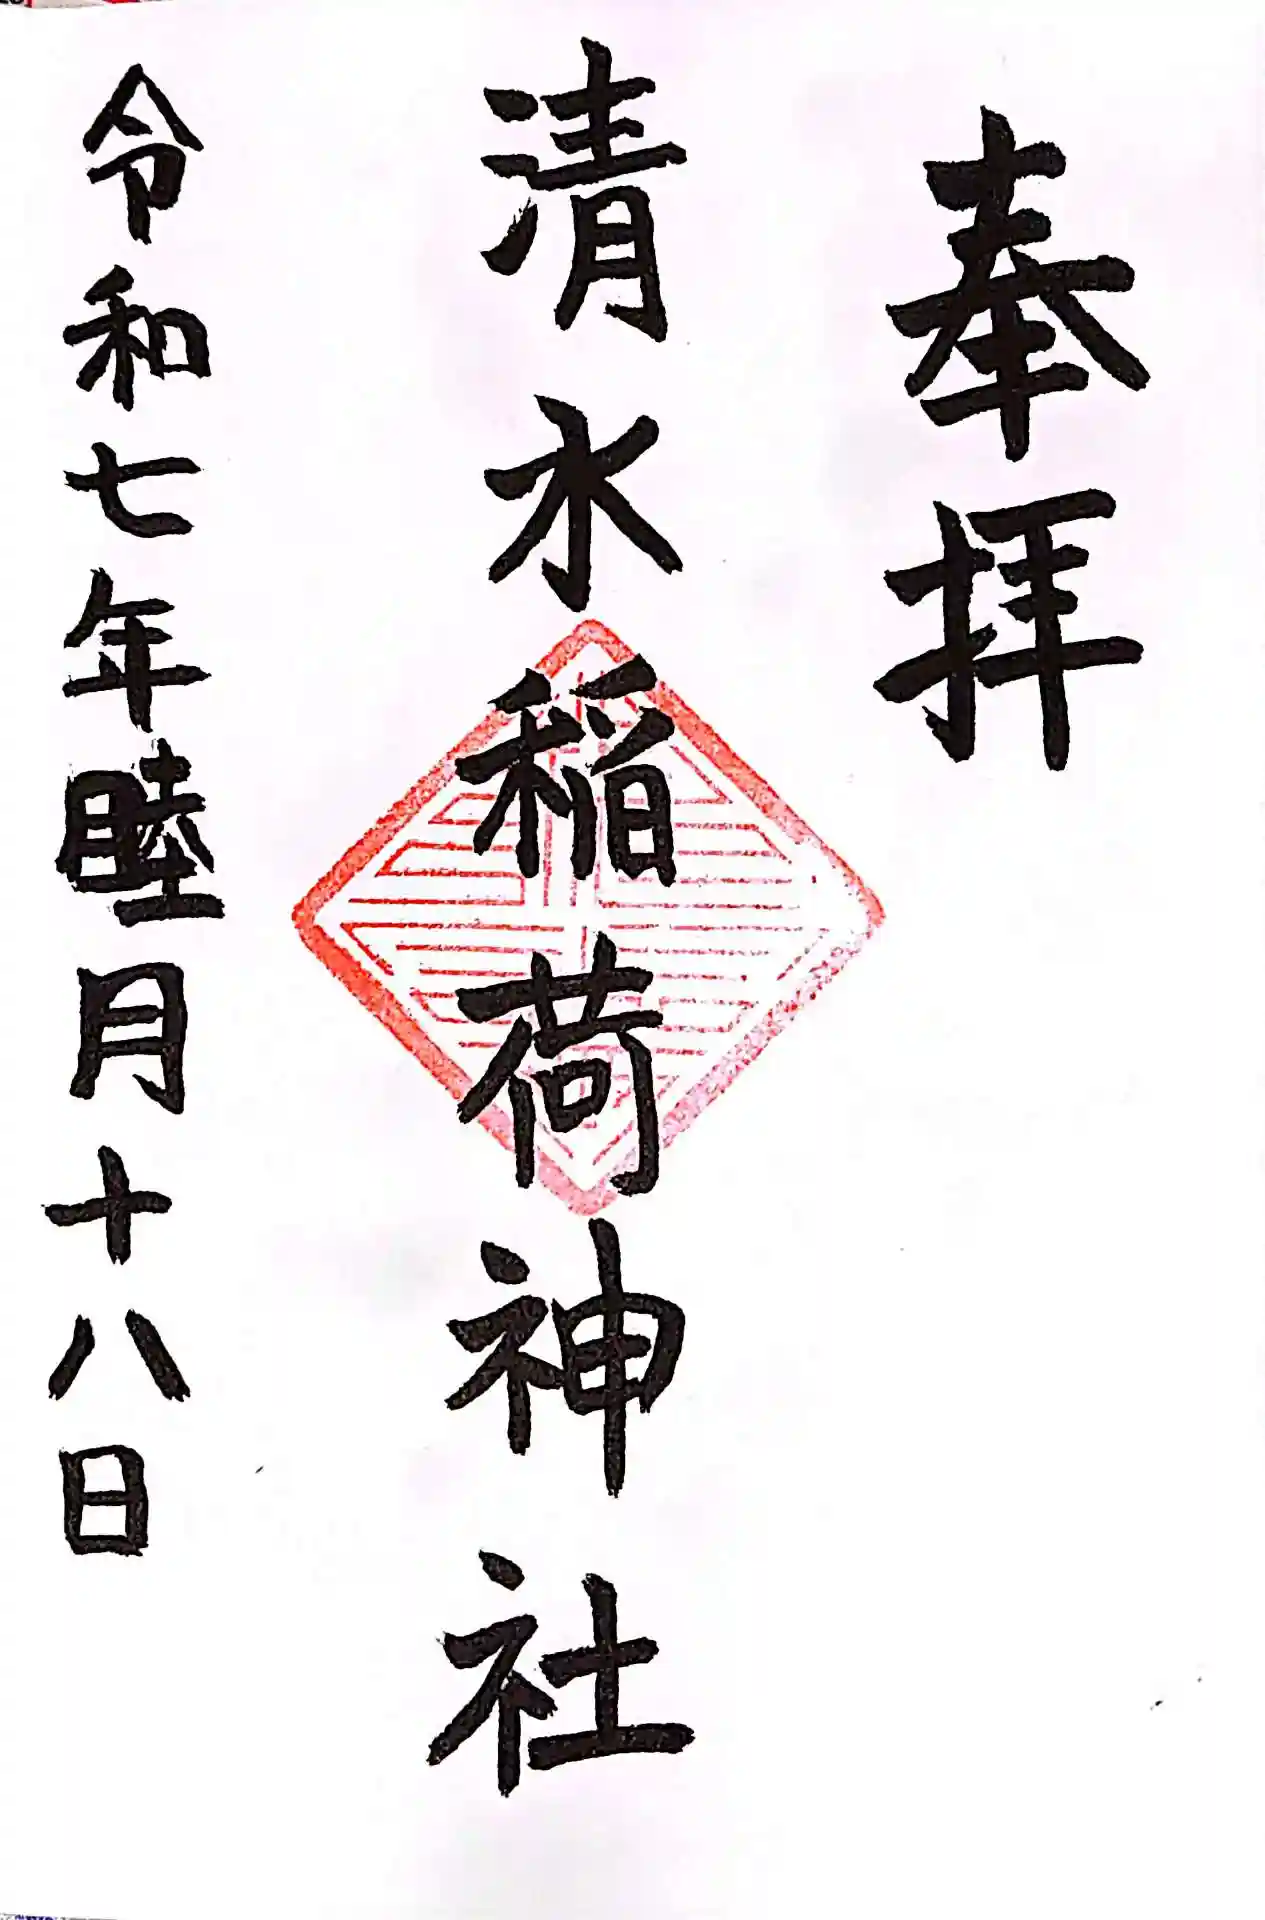 奉拝
清水稲荷神社
令和七年睦月十八日